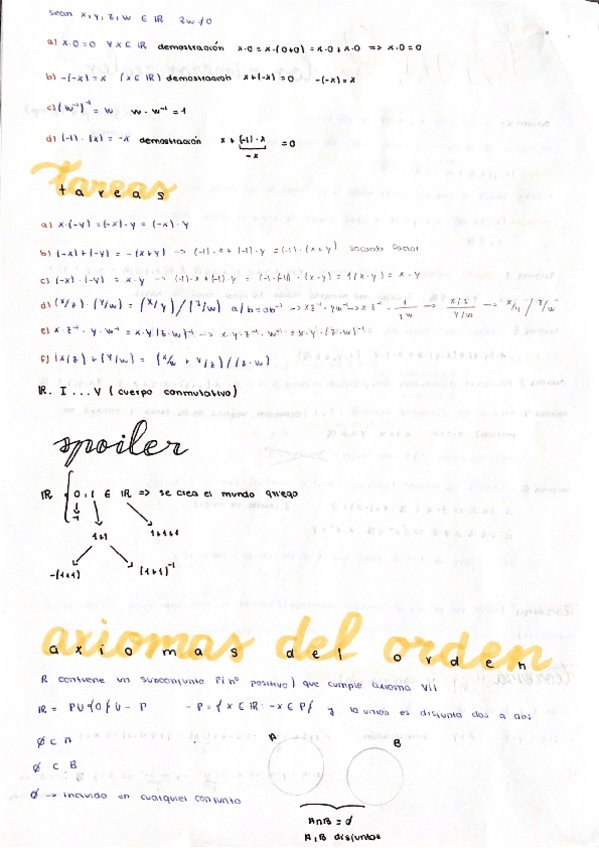 sean x, y, z, w ∈ IR zw ≠ 0
a) x·0 = 0 ∀x ∈ IR demostración x·0 = x·(0+0) = x·0 + x·0 => x·0 = 0
b) -(-x) = x (x ∈ IR) demostración x + (-x) = 0 -(-x) = x
c) (w⁻¹)⁻¹ = w w · w⁻¹ = 1
d) (-1) · (x) = -x demostración x + (-1) · x = 0
-x
tareas
a) x·(-y) = (-x)·y = (-x)·y
b) (-x) + (-y) = -(x+y) -> (-1)·x + (-1)·y = (-1)·(x+y) sacando factor
c) (-x) · (-y) = x·y -> (-1)·x + (-1)·y = (-1)·(-1) · (x·y) = 1(x·y) = x·y
d) (x/z) · (y/w) = (x/y) / (z/w) a/b = ab⁻¹ -> xz⁻¹ · yw⁻¹
e) x·z⁻¹ · y·w⁻¹ = x·y (z·w)⁻¹ -> x·y·z⁻¹·w⁻¹ = x·y·(z·w)⁻¹
f) (x/z) + (y/w) = (x/w + y/z) / (z·w)
IR. I ... V (cuerpo conmutativo)
spoiler
IR { 0, 1 ∈ IR => se crea el mundo
-1
1+1 1+1+1
-(1+1) (1+1)⁻¹
axiomas del orden
axiomas del orden
R contiene un subconjunto P (nº positivo) que cumple axioma VII
IR = P∪{0}∪-P -P = {x ∈ IR: -x ∈ P} y la unión es disjunta dos a dos
∅ ⊂ A
∅ ⊂ B
∅ -> incluido en cualquier conjunto
A B
A∩B = ∅
A, B disjuntos